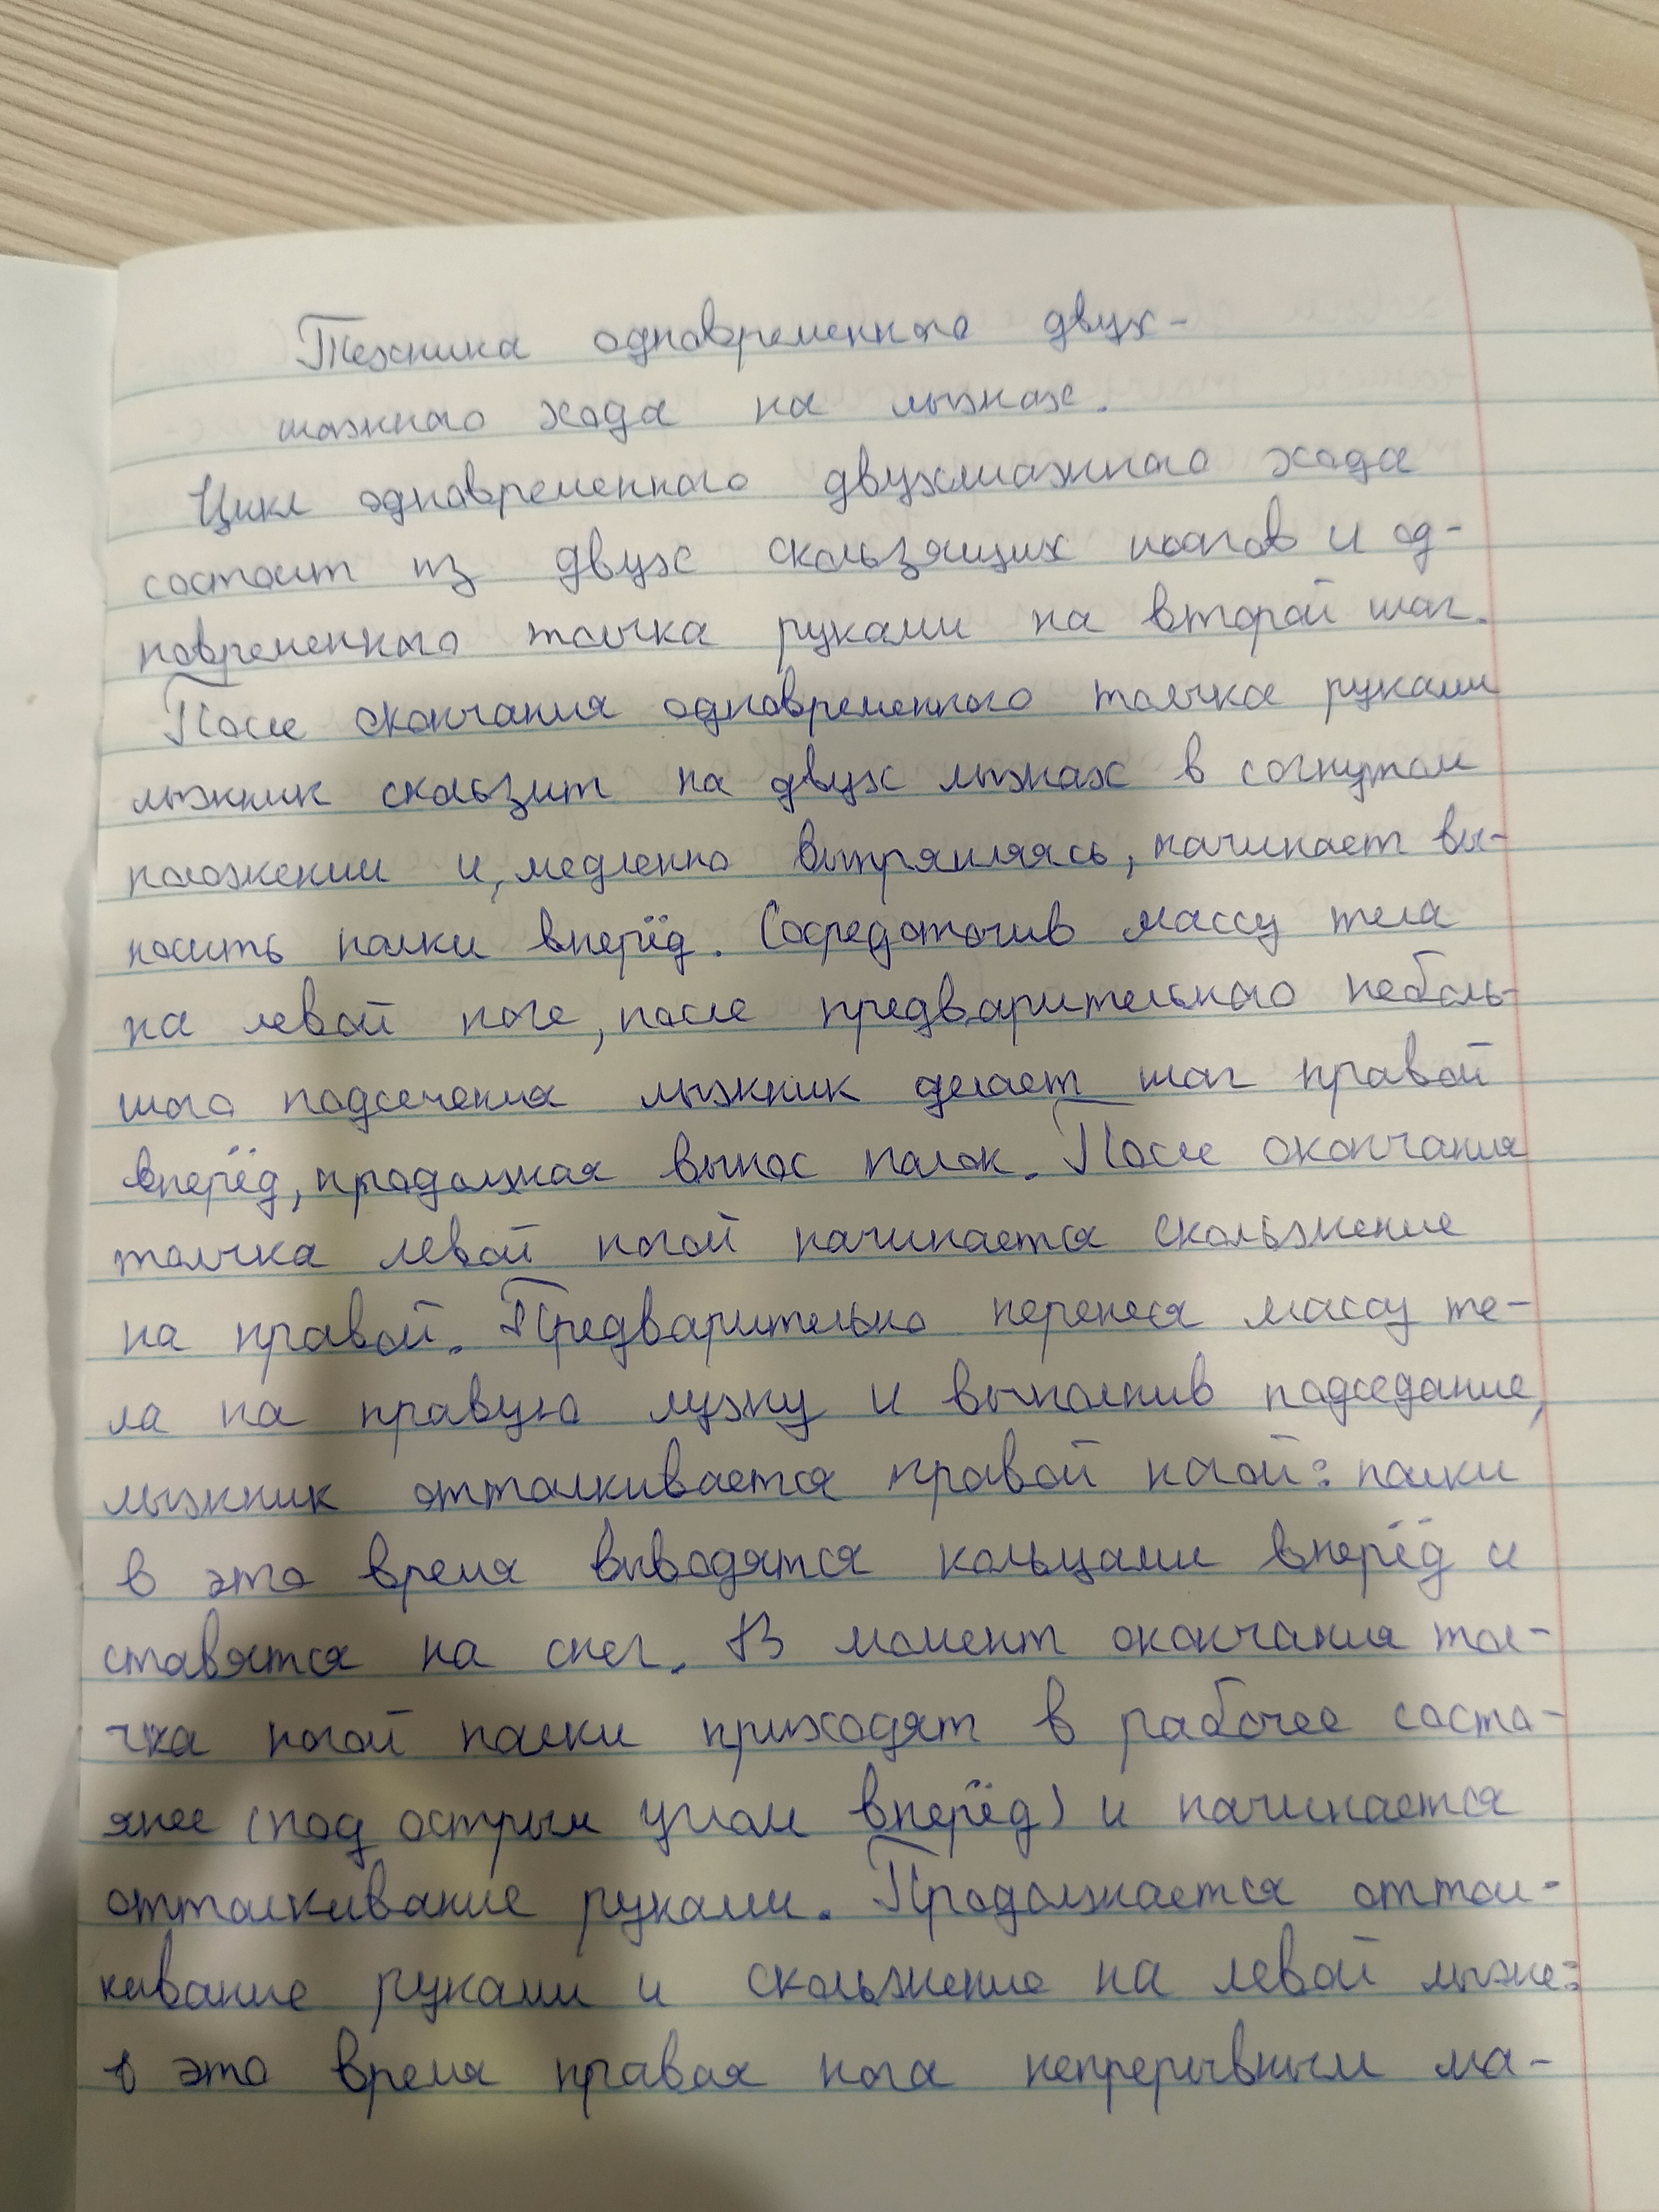 Техника одновременного двух-
шажного хода на лыжах.
Цикл одновременного двухшажного хода
состоит из двух скользящих шагов и од-
новременного толчка руками на второй шаг.
После окончания одновременного толчка руками
лыжник скользит на двух лыжах в согнутом
положении и, медленно выпрямляясь, начинает вы-
носить палки вперёд. Сосредоточив массу тела
на левой ноге, после предварительного неболь-
шого подсечения лыжник делает шаг правой
вперёд, продолжая вынос палок. После окончания
толчка левой ногой начинается скольжение
на правой. Предварительно перенеся массу те-
ла на правую лужу и выполнив подседание,
лыжник отталкивается правой ногой: палки
в это время выводятся кольцами вперёд и
ставятся на снег. В момент окончания тол-
чка ногой палки приходят в рабочее состо-
янее (под острым углом вперёд) и начинается
отталкивание руками. Продолжается оттал-
кивание руками и скольжение на левой лыже:
в это время правая нога непрерывным ма-